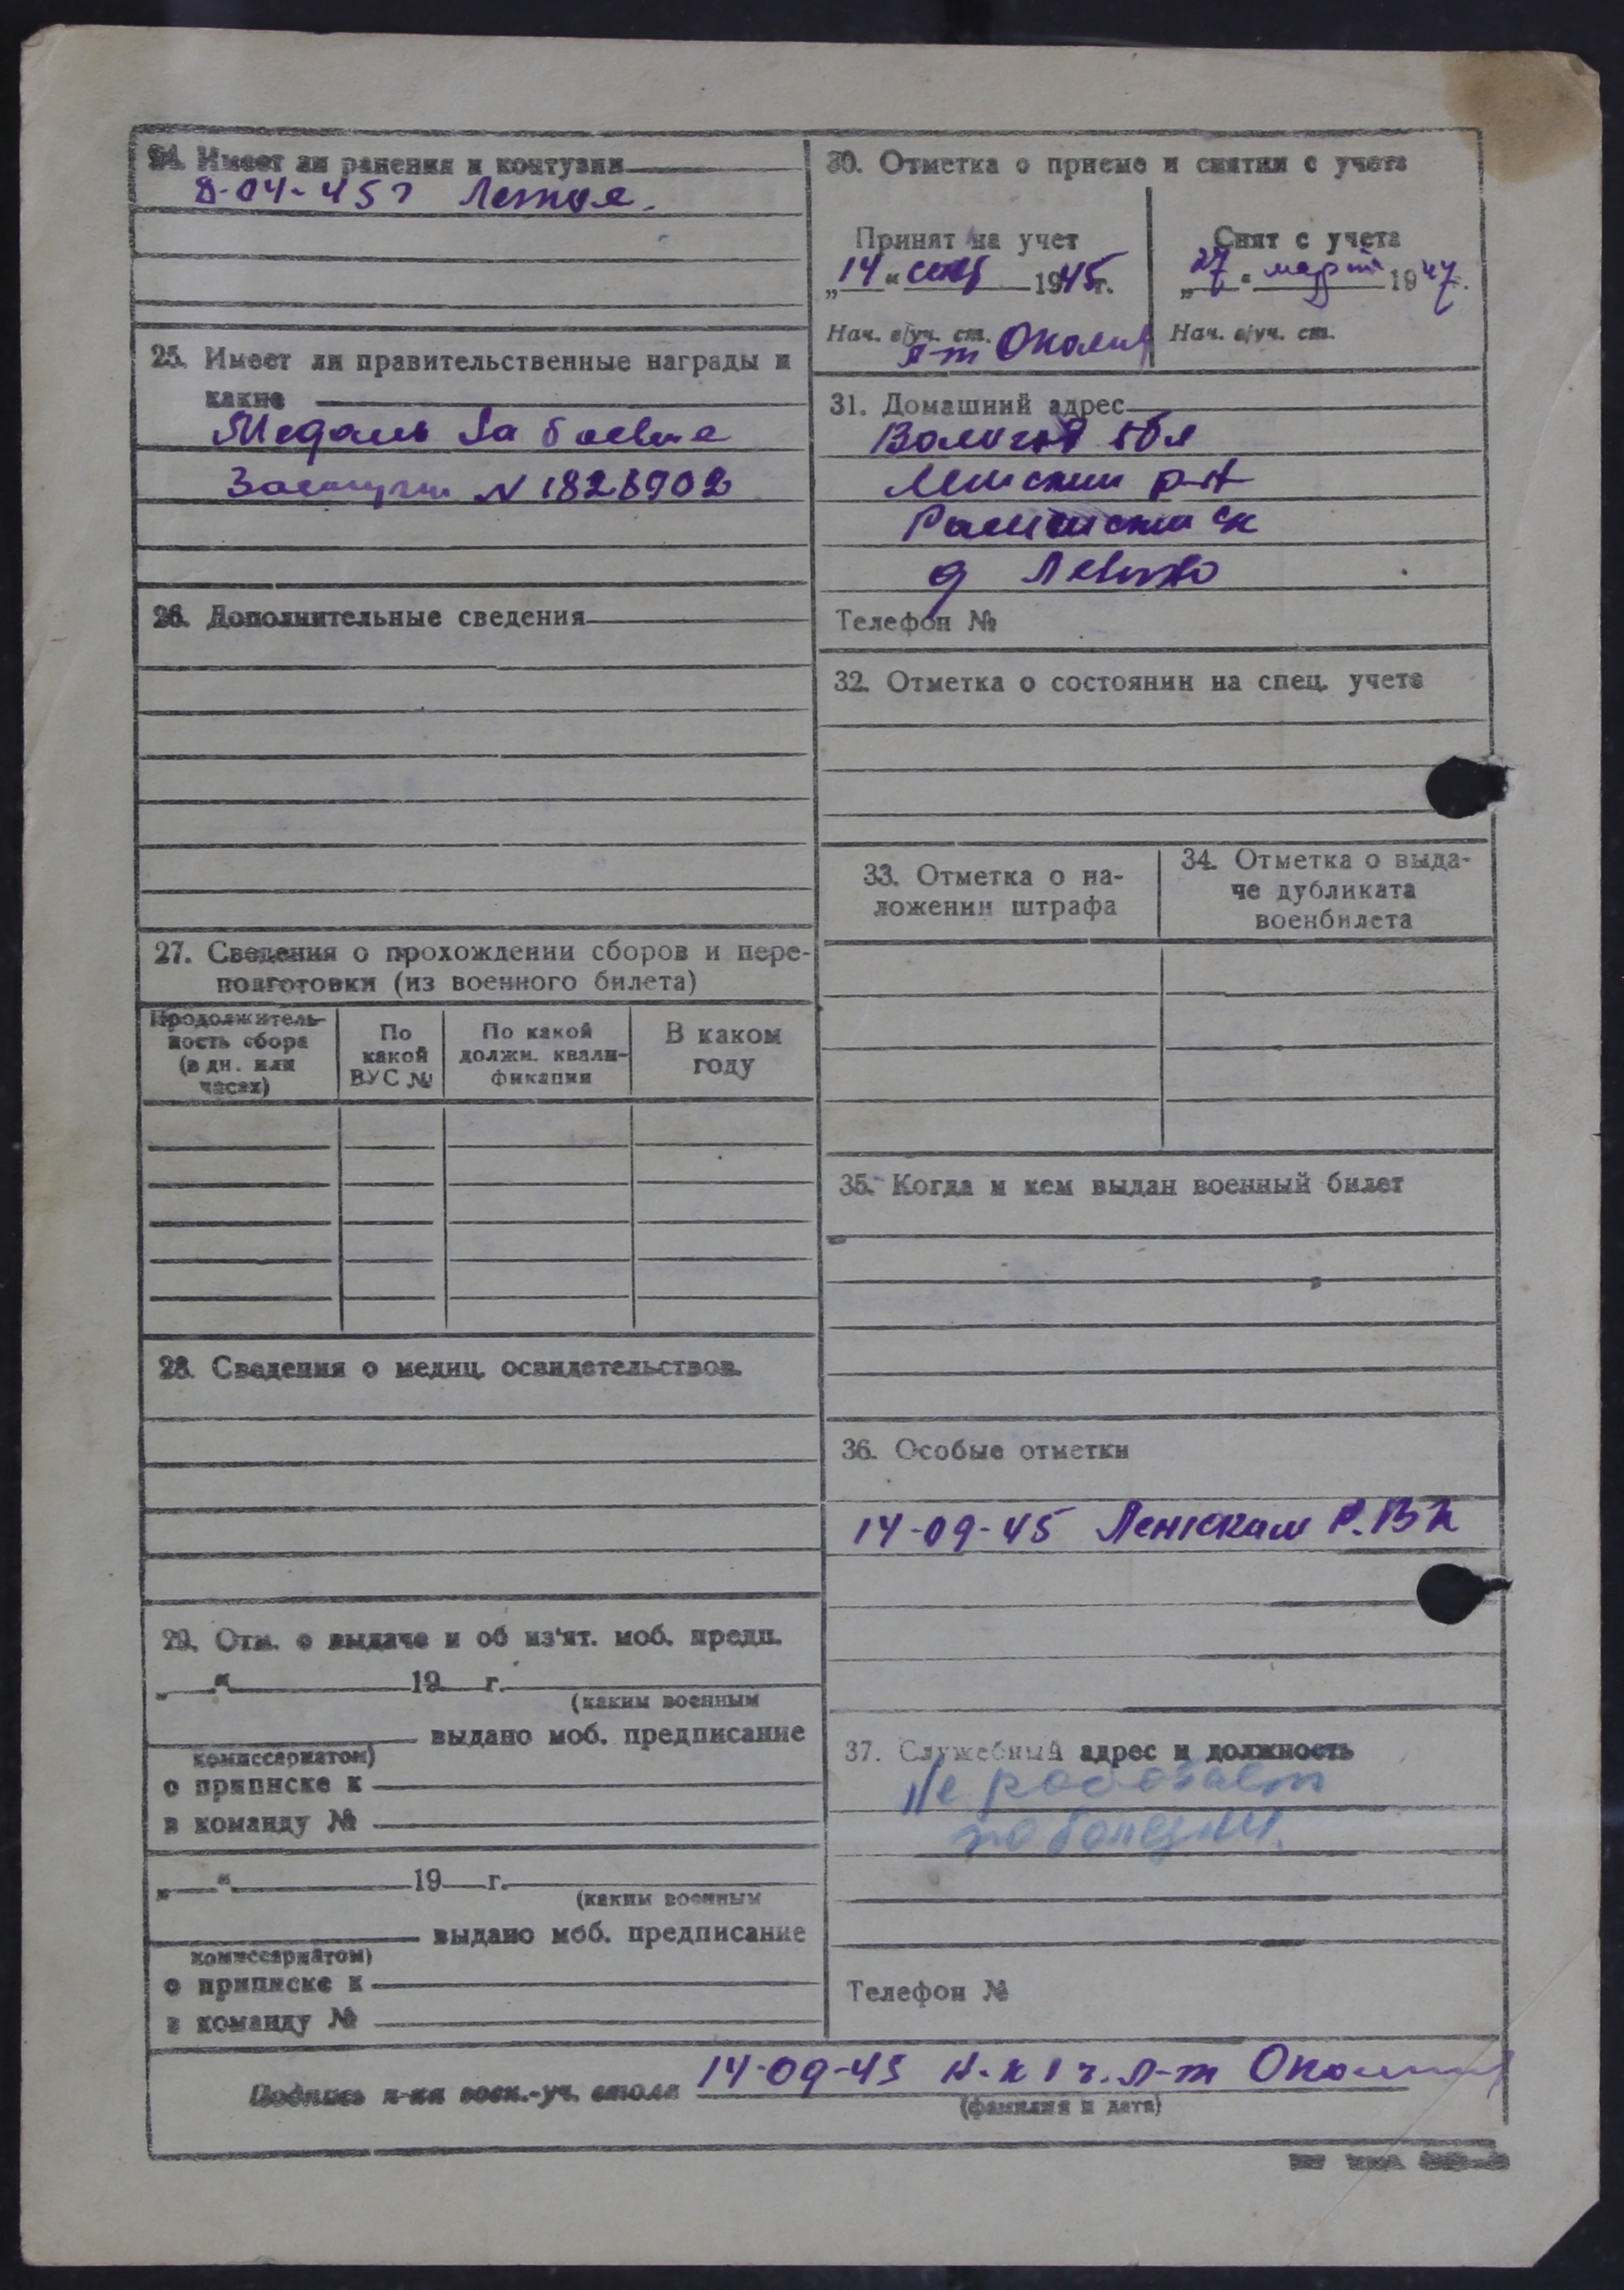 24. Имеет ли ранения и контузии
8-04-45 г Легкое.
25. Имеет ли правительственные награды и
какие
Медаль За боевые
Заслуги N 1828902
26. Дополнительные сведения
27. Сведения о прохождении сборов и пере-
подготовки (из военного билета)
Продолжитель-
ность сбора
(в дн. или
часах)
По
какой
ВУС №
По какой
должн. квали-
фикации
В каком
году
28. Сведения о медиц. освидетельствов.
29. Отм. о выдаче и об из'ят. моб. предп.
„ “ 19 г.
(каким военным
выдано моб. предписание
комиссариатом)
о приписке к
в команду №
„ “ 19 г.
(каким военным
выдано моб. предписание
комиссариатом)
о приписке к
в команду №
30. Отметка о приеме и снятии с учета
Принят на учет
„14“ сент 1945 г.
Нач. в/уч. ст.
л-т
Снят с учета
„27“ март 1947.
Нач. в/уч. ст.
31. Домашний адрес
Вологод обл
Ленский р-н
с/с
д Левино
Телефон №
32. Отметка о состоянии на спец. учете
33. Отметка о на-
ложении штрафа
34. Отметка о выда-
че дубликата
военбилета
35. Когда и кем выдан военный билет
36. Особые отметки
14-09-45 Ленским Р.В.К
37. Служебный адрес и должность
Не работает
по болезни.
Телефон №
Подпись н-ка воен.-уч. стола 14-09-45 Н-к 1 ч. л-т
(фамилия и дата)